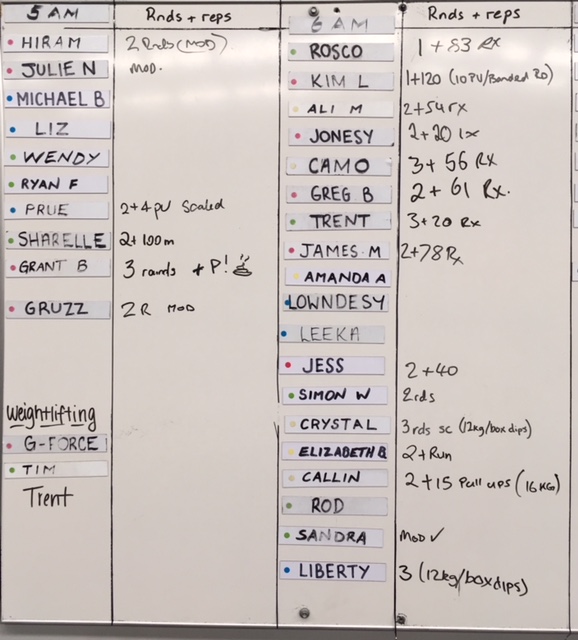 5 AM Rnds + reps
HIRAM 2 Rnds (MOD)
JULIE N MOD.
MICHAEL B
LIZ
WENDY
RYAN F
PRUE 2+4 PU Scaled
SHARELLE 2+100m
GRANT B 3 rounds + P!
GRUZZ 2 R MOD
Weightlifting
G-FORCE
TIM
Trent
6 AM Rnds + reps
ROSCO 1 + 83 Rx
KIM L 1+120 (10 PU/Banded
ALI M 2+54 rx
JONESY 2+20
CAMO 3+ 56 Rx
GREG B 2 + 61 Rx.
TRENT 3+20 Rx
JAMES M 2+78 Rx
AMANDA A
LOWNDESY
LEEKA
JESS 2+40
SIMON W 2rds
CRYSTAL 3rds sc (12kg/box dips)
ELIZABETH B 2+Run
CALLIN 2+15 Pull ups (16KG)
ROD
SANDRA MOD ✓
LIBERTY 3 (12kg/box dips)